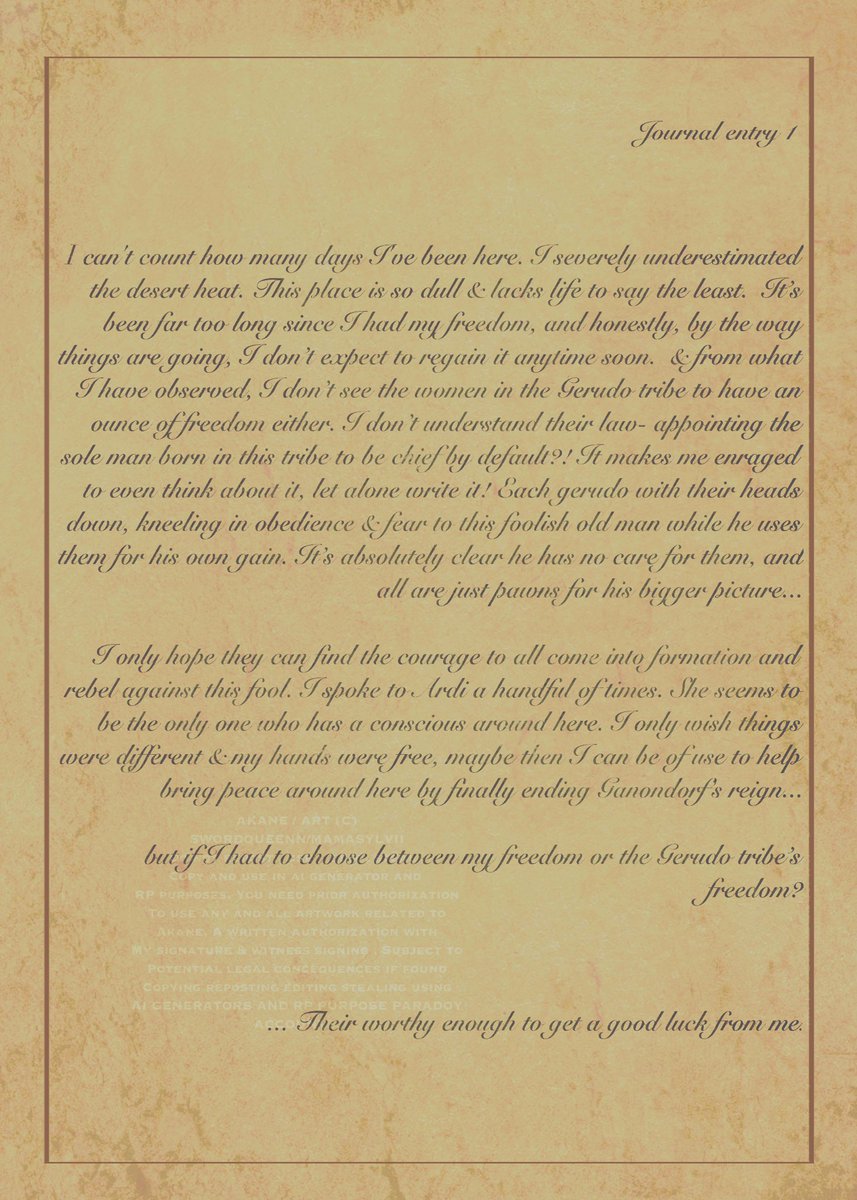 Journal entry 1
I can't count how many days I've been here. I severely underestimated
the desert heat. This place is so dull & lacks life to say the least. It's
been far too long since I had my freedom, and honestly, by the way
things are going, I don't expect to regain it anytime soon. & from what
I have observed, I don't see the women in the Gerudo tribe to have an
ounce of freedom either. I don't understand their law- appointing the
sole man born in this tribe to be chief by default?! It makes me enraged
to even think about it, let alone write it! Each gerudo with their heads
down, kneeling in obedience & fear to this foolish old man while he uses
them for his own gain. It's absolutely clear he has no care for them, and
all are just pawns for his bigger picture...
I only hope they can find the courage to all come into formation and
rebel against this fool. I spoke to Ardi a handful of times. She seems to
be the only one who has a conscious around here. I only wish things
were different & my hands were free, maybe then I can be of use to help
bring peace around here by finally ending Ganondorf's reign...
AKANE / ART (C)
SWORDQUEENN/MAMASYLVII
but if I had to choose between my freedom or the Gerudo tribe's
freedom?
Copy and use in AI generator and
RP purposes. You need prior authorization
to use any and all artwork related to
Akane. A written authorization with
My signature & witness signing . Subject to
Potential legal consequences if found
Copying reposting editing stealing using
AI generators and RP purpose parady
... Their worthy enough to get a good luck from me.